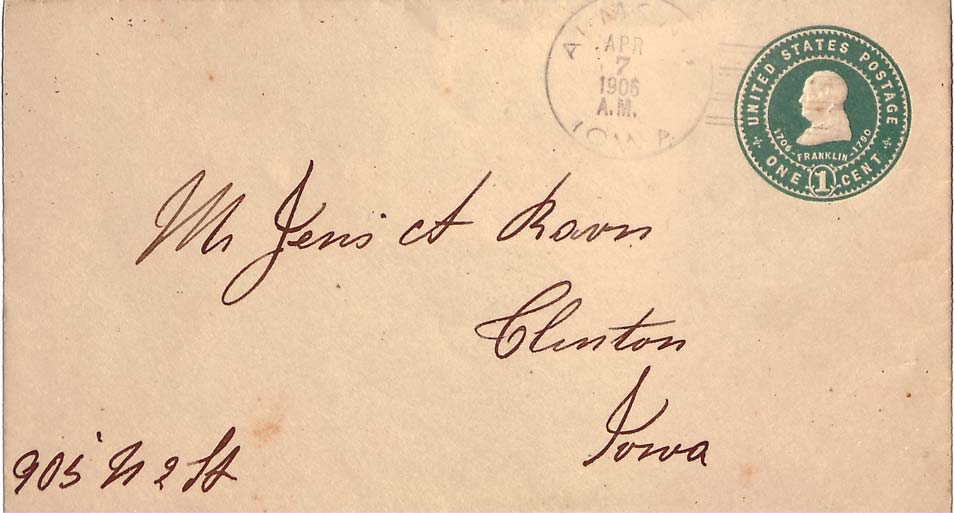 APR
7
1906
A.M.
IOWA
UNITED STATES POSTAGE
1706 FRANKLIN 1790
ONE 1 CENT
Mr Jens A Ravn
Clinton
Iowa
905 N 2 St